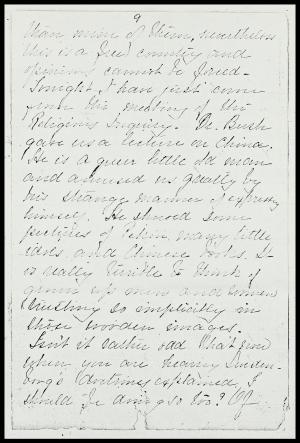 9
than mine of them, nevertheless
this is a free country and
opinions cannot be forced.
Tonight I have just come
from the meeting of the
Religious Inquiry. Dr. Bush
gave us a lecture on China.
He is a queer little old man
and amused us greatly by
his strange manner of expressing
himself. He showed some
pictures of China, many little
idols, and Chinese books. It
is really terrible to think of
grown up men and women
trusting so implicitly in
those wooden images.
Isn't it rather odd that just
when you are hearing Sweden-
borg's doctrines explained, I
should be doing so too? Of